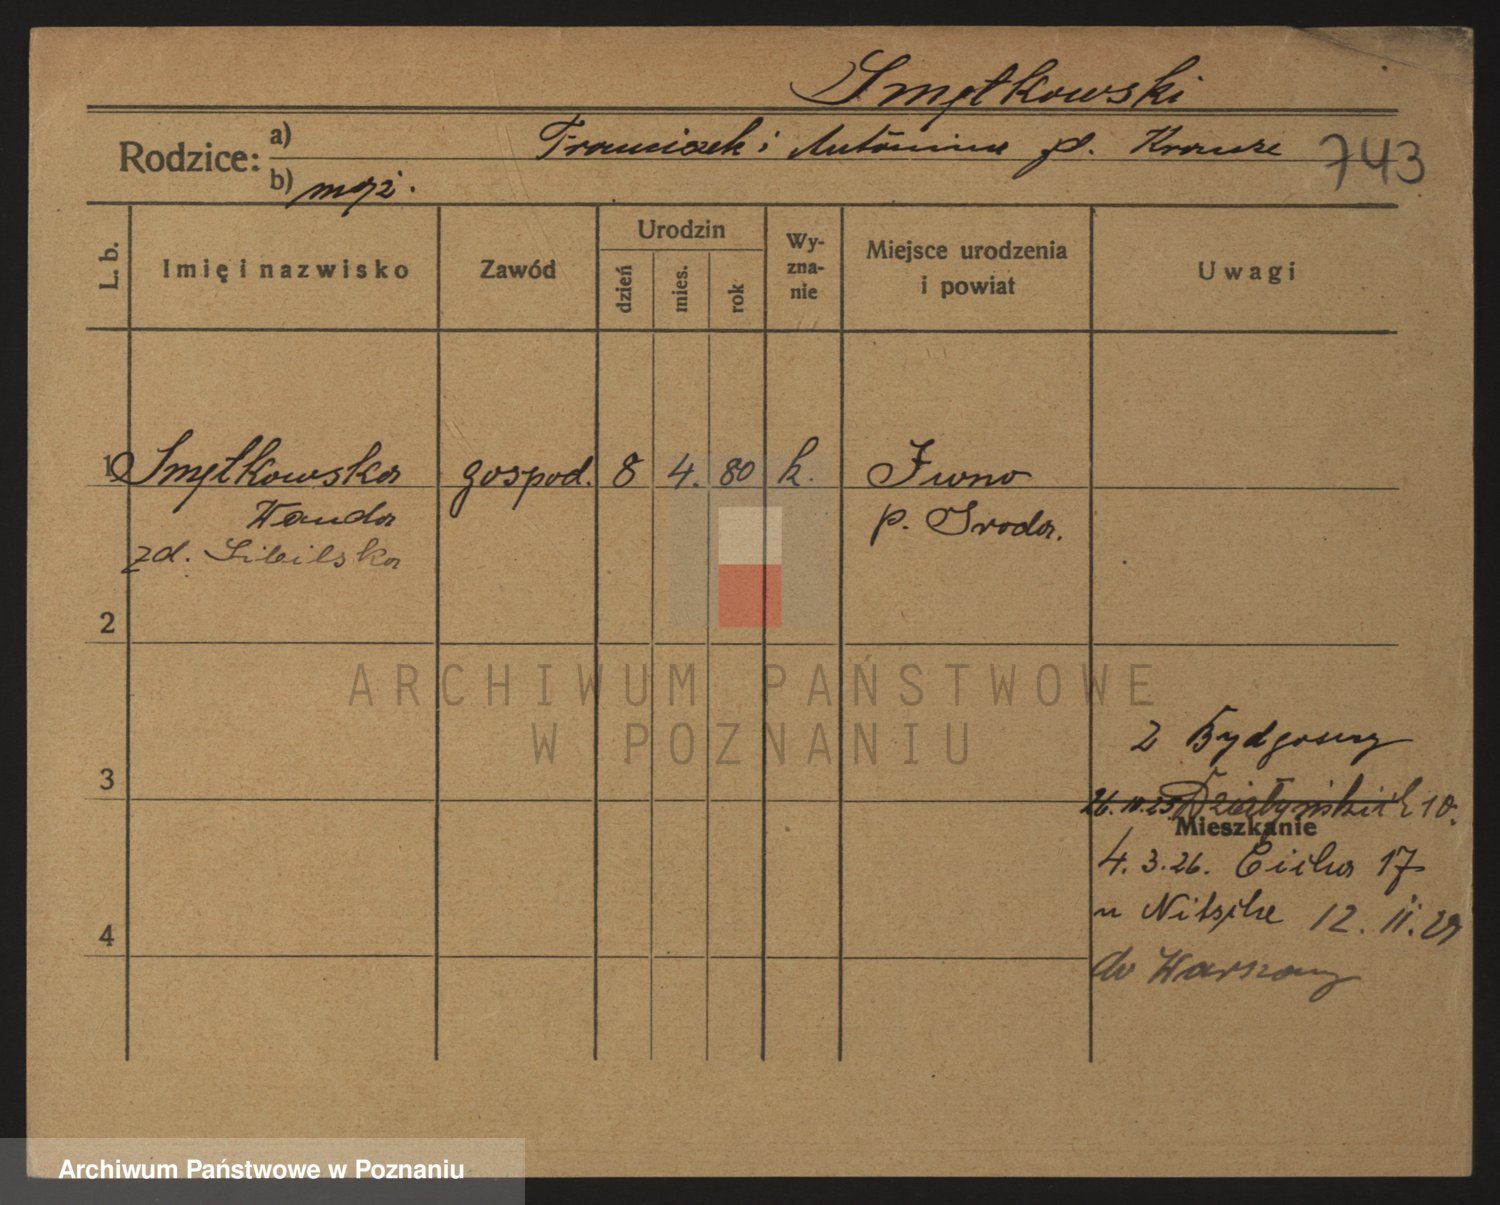 Smętkowski
Rodzice: a) Franciszek i Antonina zd. Krauze 743
b) mąż.
L. b. Imię i nazwisko Zawód Urodzin dzień mies. rok Wy-zna-nie Miejsce urodzenia i powiat Uwagi
1 Smętkowska gospod. 8 4. 80 k. Iwno
Wanda p. Środa.
zd. Sibilska
2
ARCHIWUM PAŃSTWOWE
W POZNANIU
z Bydgoszczy
3
26.10.25 Działyńskich 10.
Mieszkanie
4. 3. 26. Cicha 17
u Nitsche 12. II. 29
4
do Warszawy
Archiwum Państwowe w Poznaniu